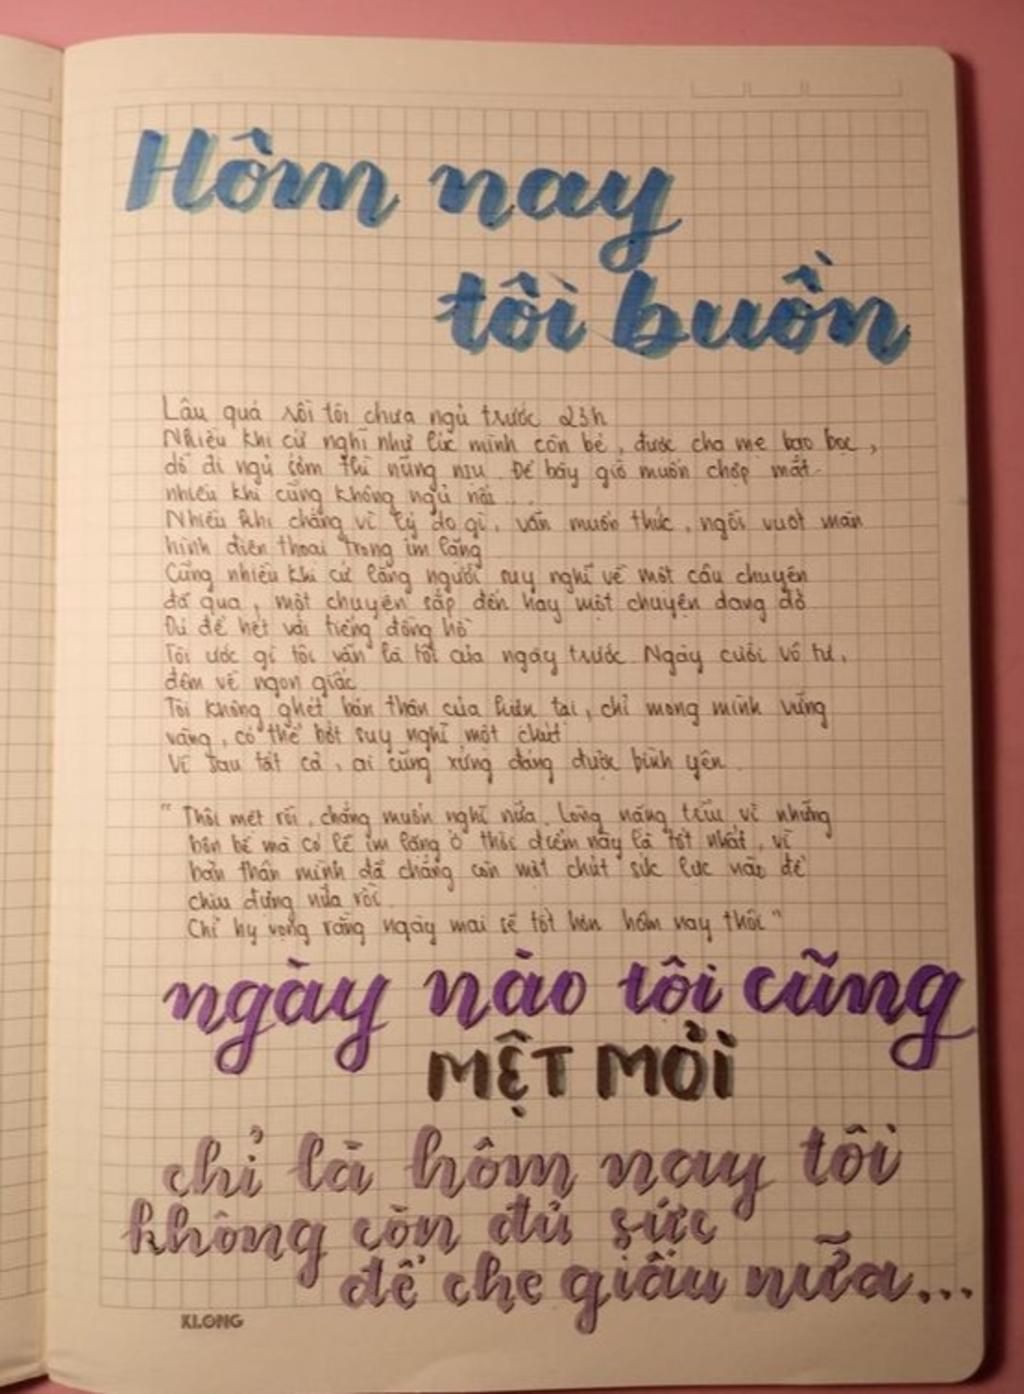 Hôm nay
tôi buồn
Lâu quá rồi tôi chưa ngủ trước 23h
Nhiều khi cứ nghĩ như lúc mình còn bé, được cha mẹ bao bọc,
dỗ đi ngủ sớm thì nũng nịu. Để bây giờ muốn chợp mắt
nhiều khi cũng không ngủ nổi...
Nhiều khi chẳng vì lý do gì, vẫn muốn thức, ngồi vuốt màn
hình điện thoại trong im lặng
Cũng nhiều khi cứ lặng người suy nghĩ về một câu chuyện
đã qua, một chuyện sắp đến hay một chuyện dang dở
Đủ để hét với tiếng đồng hồ
Tôi ước gì tôi vẫn là tôi của ngày trước. Ngày cười vô tư,
đêm về ngon giấc
Tôi không ghét bản thân của hiện tại, chỉ mong mình vững
vàng, có thể bớt suy nghĩ một chút
Vì sau tất cả, ai cũng xứng đáng được bình yên.
"Thôi mệt rồi, chẳng muốn nghĩ nữa. Lòng nặng trĩu vì những
bộn bề mà có lẽ im lặng ở thời điểm này là tốt nhất, vì
bản thân mình đã chẳng còn một chút sức lực nào để
chịu đựng nữa rồi.
Chỉ hy vọng rằng ngày mai sẽ tốt hơn hôm nay thôi"
ngày nào tôi cũng
MỆT MỎI
chỉ là hôm nay tôi
không còn đủ sức
để che giấu nữa...
KLONG